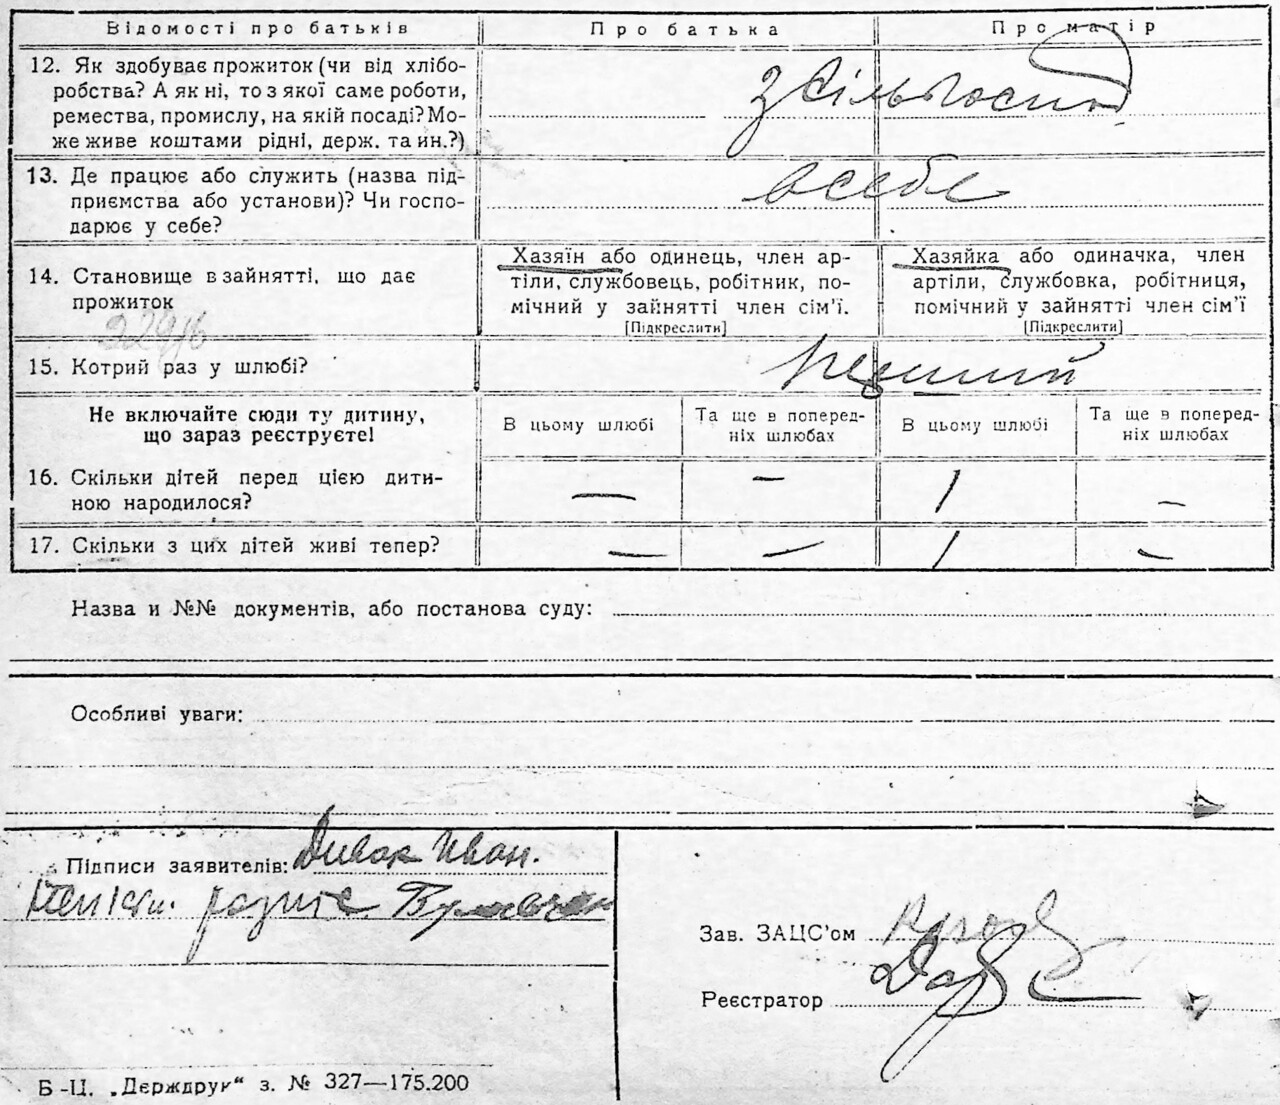 Відомості про батьків Про батька Про матір
12. Як здобуває прожиток (чи від хлібо-
робства? А як ні, то з якої саме роботи,
ремества, промислу, на якій посаді? Мо-
же живе коштами рідні, держ. та ин.?)
З сільгосп
13. Де працює або служить (назва під-
приємства або установи)? Чи госпо-
дарює у себе?
в себе
14. Становище в зайнятті, що дає
прожиток
22916
Хазяїн або одинець, член ар-
тіли, службовець, робітник, по-
мічний у зайнятті член сім’ї.
[Підкреслити]
Хазяйка або одиначка, член
артіли, службовка, робітниця,
помічний у зайнятті член сім’ї
[Підкреслити]
15. Котрий раз у шлюбі?
Не включайте сюди ту дитину,
що зараз реєструєте!
В цьому шлюбі
Та ще в поперед-
ніх шлюбах
В цьому шлюбі
Та ще в поперед-
ніх шлюбах
16. Скільки дітей перед цією дити-
ною народилося?
— — 1 —
17. Скільки з цих дітей живі тепер?
— — 1 —
Назва и №№ документів, або постанова суду:
Особливі уваги:
Підписи заявителів: Дивак Иван.
Зав. ЗАЦС’ом
Реєстратор
Б-Ц. „Держдрук“ з. № 327—175.200